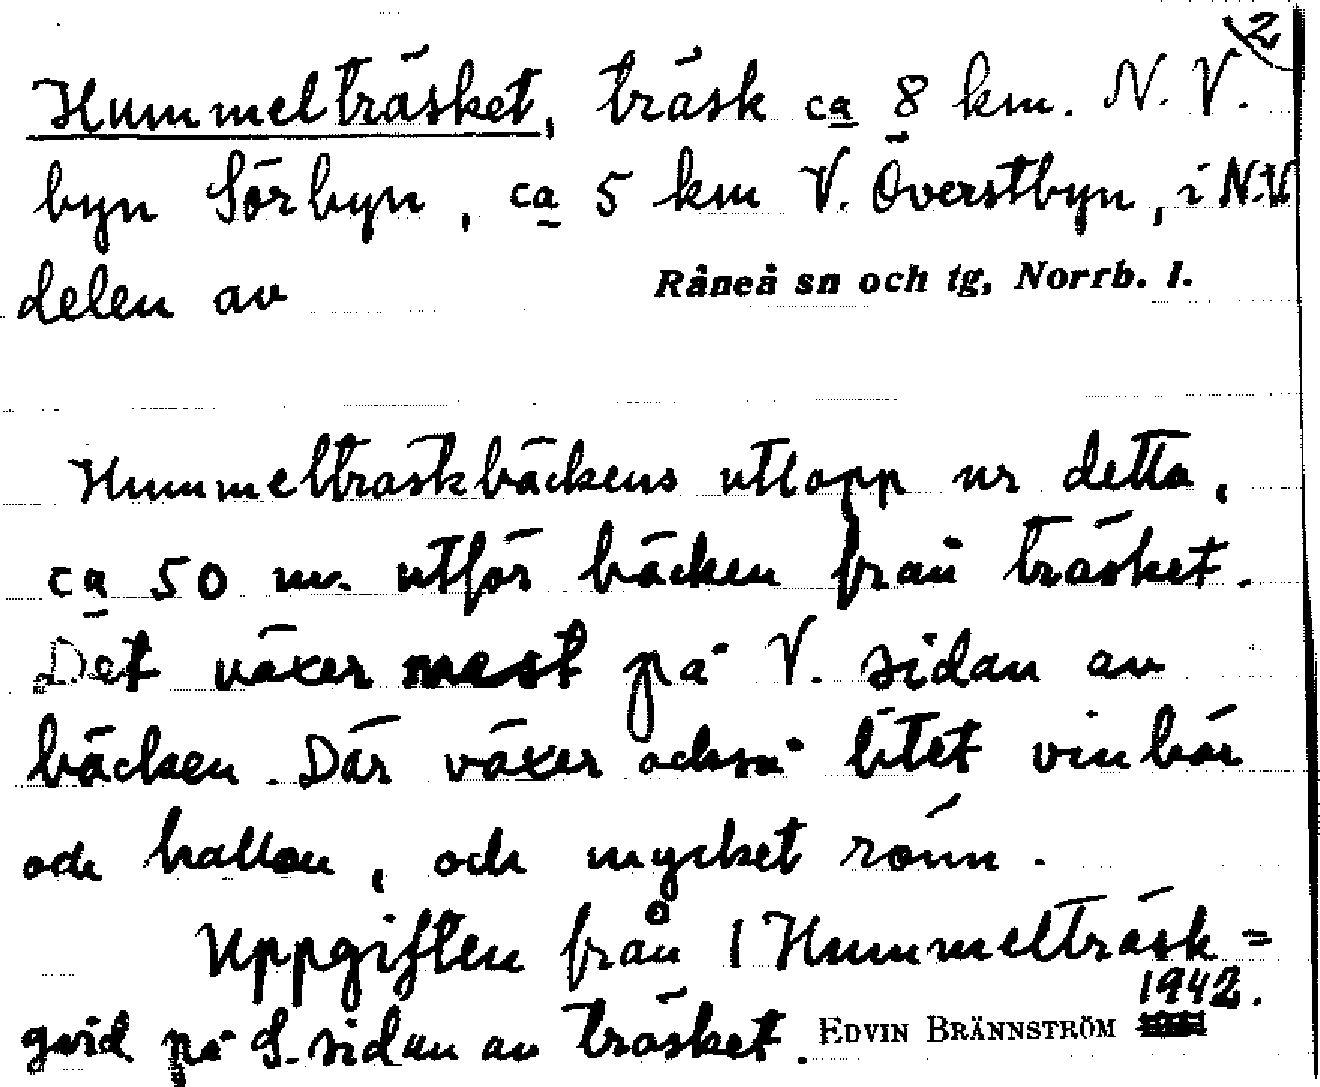 2
Hummelträsket, träsk ca 8 km. N. V.
byn Sörbyn, ca 5 km V. Överstbyn, i N.V.
delen av Råneå sn och tg, Norrb. l.
Hummelträskbäckens utlopp ur detta,
ca 50 m. utför bäcken från träsket.
Det växer mest på V. sidan av
bäcken. Där växer också litet vinbär
och hallon, och mycket rönn.
Uppgiften från 1 Hummelträsk=
1942.
gård på S. sidan av träsket. EDVIN BRÄNNSTRÖM